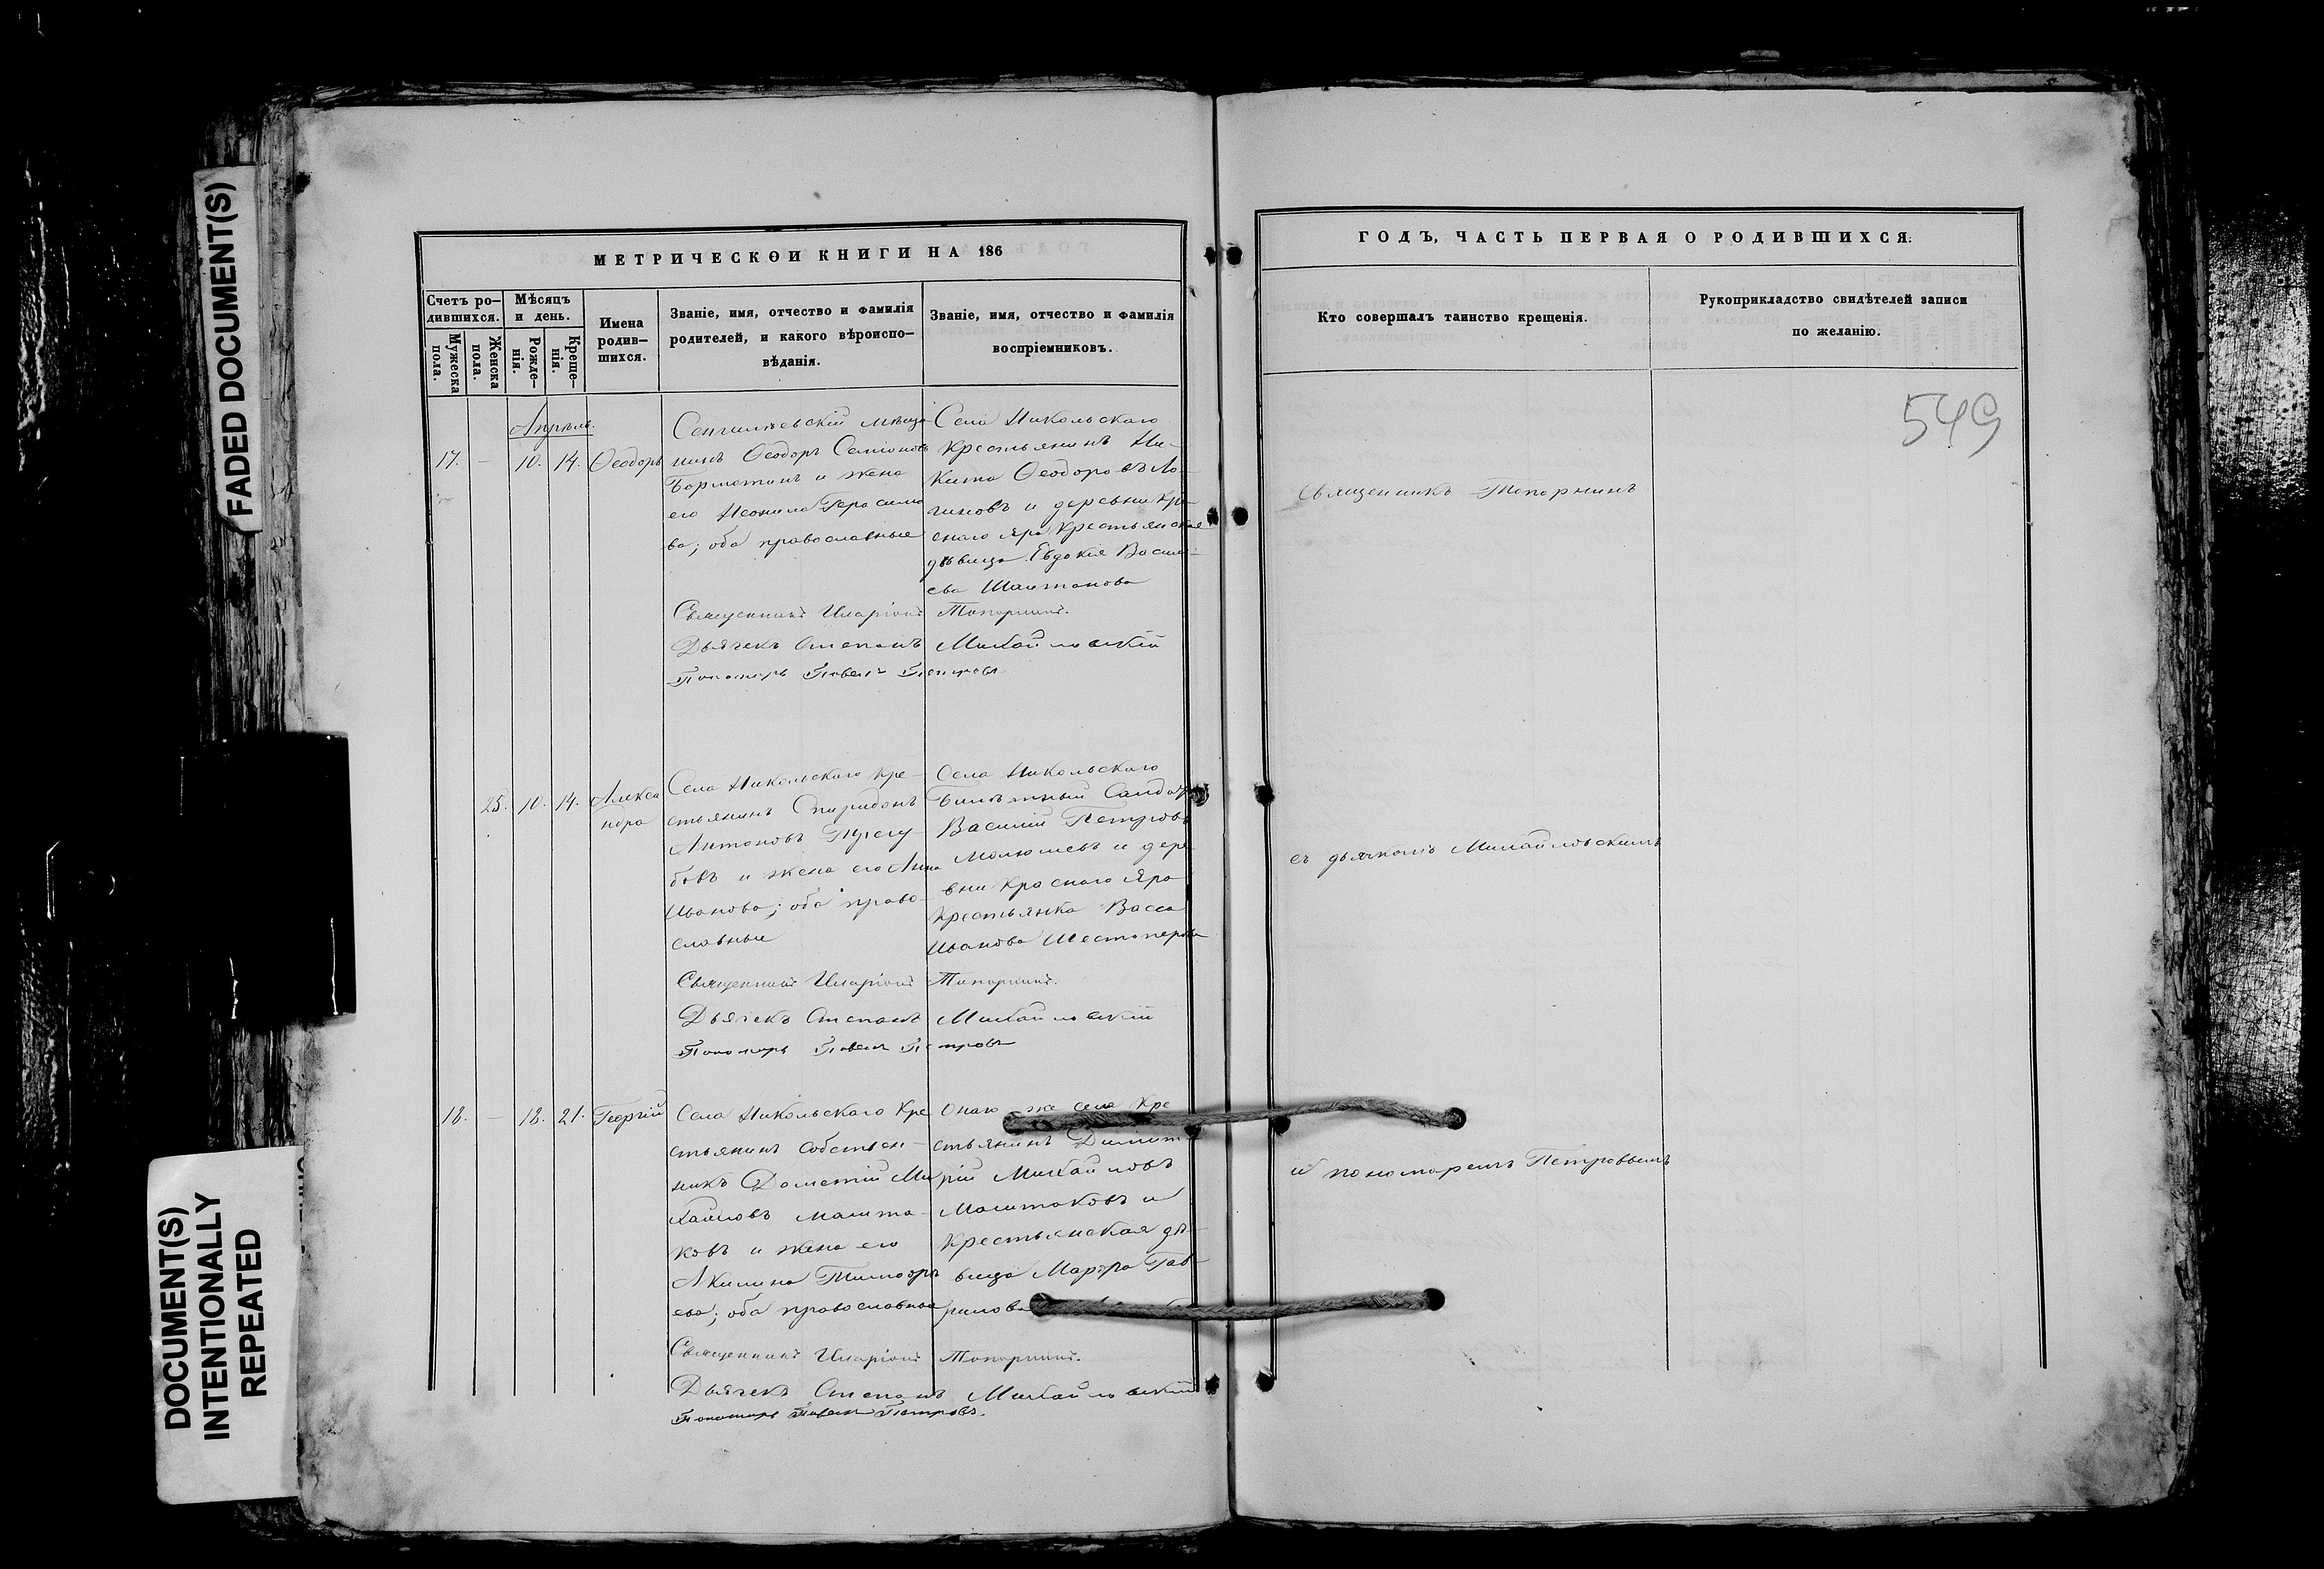 FADED DOCUMENT(S)
DOCUMENT(S)
INTENTIONALLY
REPEATED
МЕТРИЧЕСКОЙ КНИГИ НА 186
Счетъ ро-
дившихся.
Мужеска
пола.
Женска
пола.
Мѣсяцъ
и день.
Рожде-
нія.
Креще-
нія.
Имена
родив-
шихся.
Званіе, имя, отчество и фамилія
родителей, и какого вѣроиспо-
вѣданія.
Званіе, имя, отчество и фамилія
воспріемниковъ.
Апрѣль.
17. — 10. 14. Ѳеодоръ
Сенгилѣевскій мѣща-
нинъ Ѳеодоръ Семіоновъ
Бормотинъ и жена
его Неонила Герасимо
ва; оба православные
Села Никольскаго
крестьянинъ Ни-
кита Ѳеодоровъ Ло-
гиновъ и деревни Кра
снаго Яра крестьянская
дѣвица Евдокія Васил-
ева Шаитанова
Священникъ Иларіонъ Топорнинъ.
Дьячекъ Степанъ Михайловскій
Пономарь Павелъ Петровъ
25. 10. 14. Алекса
ндра
Села Никольскаго кре-
стьянинъ Спиридонъ
Антоновъ
и жена его Анна
Иванова; оба право-
славные
Села Никольскаго
Билѣтный Солдатъ
Василій Петровъ
и дере
вни Краснаго Яра
крестьянка Васса
Иванова Шестоперова
Священникъ Иларіонъ Топорнинъ.
Дьячекъ Степанъ Михайловскій
Пономарь Павелъ Петровъ
18. — 18. 21. Георгій
Села Никольскаго кре
стьянинъ собствен-
никъ Дометій Ми
хайловъ Машта-
ковъ и жена его
Акилина Тимоѳѣ
ева; оба православные
Онаго же села кре
стьянинъ Димит-
рій Михайловъ
Маштаковъ и
крестьянская дѣ-
вица Марѳа Гав-
рилова
Священникъ Иларіонъ Топорнинъ.
Дьячекъ Степанъ Михайловскій
Пономарь Павелъ Петровъ.
ГОДЪ, ЧАСТЬ ПЕРВАЯ О РОДИВШИХСЯ:
Кто совершалъ таинство крещенія.
Рукоприкладство свидѣтелей записи
по желанію.
549
Священникъ Топорнинъ
съ дьячкомъ Михайловскимъ
и пономаремъ Петровымъ